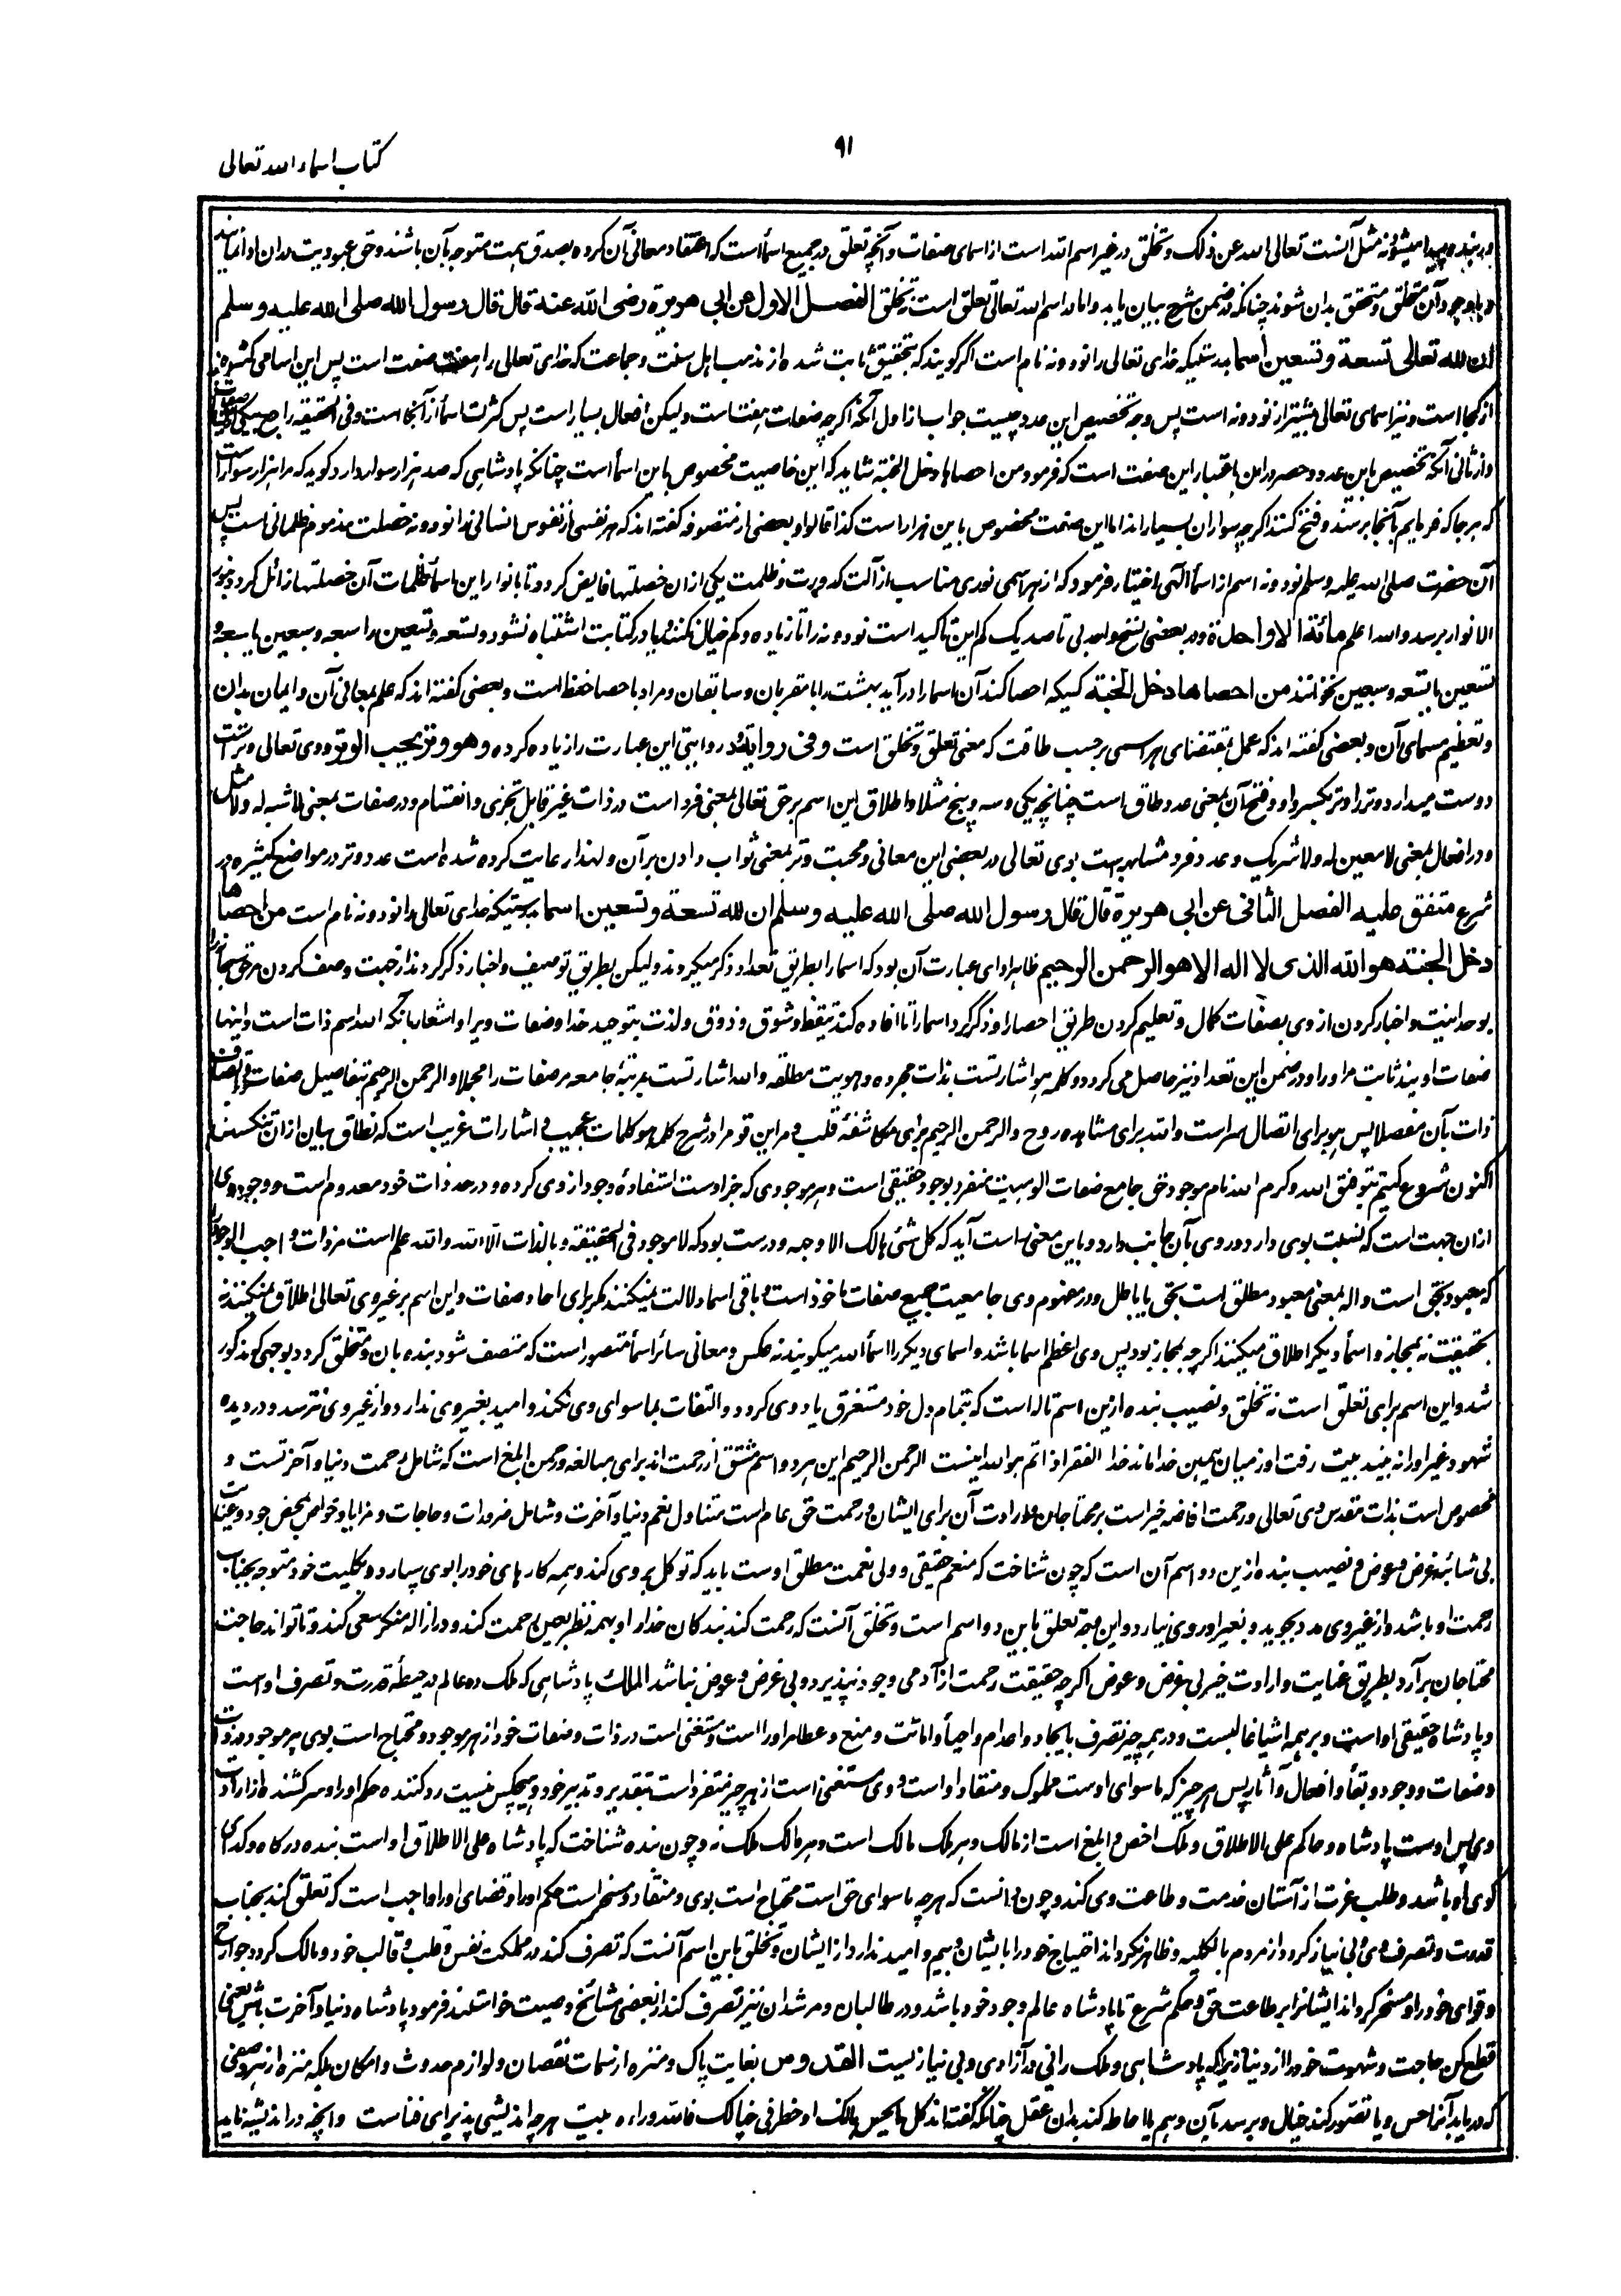 ۹۱
کتاب اسماء الله تعالی
مثل آنست تعالی الله عن ذلک و تخلق در غیر اسم الله است از اسمای صفات و آنچه تعلق در جمیع اسما است که اعتقاد معانی آن کرده بصدق همت متوجه بآن باشند و حق عبودیت بدان ادا نمایند
و با وجود آن متخلق و متحقق بدان شوند چنانکه در ضمن شرح بیان یابد و اما در اسم الله تعالی تعلق است نه تخلق الفصل الاول عن ابی هریرة رضی الله عنه قال قال رسول الله صلی الله علیه و سلم
ان لله تعالی تسعة و تسعین اسما بدرستیکه خدای تعالی را نود و نه نام است اگر گویند که بتحقیق ثابت شده از مذهب اهل سنت و جماعت که خدای تعالی را هفت صفت است پس این اسامی
از کجا است و نیز اسمای تعالی بیشتر از نود و نه است پس وجه تخصیص این عدد چیست جواب از اول آنکه اگرچه صفات هفت است و لیکن افعال بسیار است پس کثرت اسما از آنجا است و فی الحقیقه راجع
و از ثانی آنکه تخصیص باین عدد و حصر در این باعتبار این صفت است که فرمود من احصاها دخل الجنة شاید که این خاصیت مخصوص باین اسما است چنانکه پادشاهی که صد هزار سوار دارد گوید که مرا هزار سوار است
که هر جا که فرمایم بآنجا برسند و فتح کنند اگرچه سواران بسیار اند اما این صفت مخصوص باین هزار است کذا قالوا و بعضی از متصوفه گفته اند که هر نفسی از نفوس انسانی را نود و نه خصلت مذموم ظلمانی است پس
آن حضرت صلی الله علیه وسلم نود و نه اسم از اسما الهی اختیار فرمود که از هر اسمی نوری مناسب ازالت کدورت و ظلمت یکی از ان خصلتها فایض گردد تا بانوار این اسما ظلمات آن خصلتها زائل گردد
الانوار برسد والله اعلم مائة الا واحدة و در بعضی نسخ واحد بی تا صد یک کم این تاکید است نود و نه را تا زیاده و کم خیال نکنند یا در کتابت اشتباه نشود و تسعه و تسعین را سبعه و سبعین یا سبعه و
تسعین یا تسعه و سبعین نخوانند من احصاها دخل الجنة کسیکه احصا کند آن اسما را درآید بهشت را با مقربان و سابقان و مراد باحصا حفظ است و بعضی گفته اند که علم بمعانی آن و ایمان بدان
و تعظیم مسمای آن و بعضی گفته اند که عمل بمقتضای هر اسمی بر حسب طاقت که معنی تعلق و تخلق است و فی روایة و در روایتی این عبارت را زیاده کرده و هو وتر یحب الوتر و وی تعالی وتر است
دوست میدارد وتر را وتر بکسر واو و فتح آن بمعنی عدد طاق است چنانچه یکی و سه و پنج مثلا و اطلاق این اسم بر حق تعالی بمعنی فرد است در ذات غیر قابل تجزی و انقسام و در صفات بمعنی لا شبه له و لا مثل
و در افعال بمعنی لا معین له و لا شریک و عدد فرد مشابهت بوی تعالی در بعضی این معانی و محبت وتر بمعنی ثواب دادن بر آن و لهذا رعایت کرده شده است عدد وتر در مواضع کثیره در
شرع متفق علیه الفصل الثانی عن ابی هریرة قال قال رسول الله صلی الله علیه و سلم ان لله تسعة و تسعین اسما بدرستیکه خدای تعالی را نود و نه نام است من احصاها
دخل الجنة هو الله الذی لا اله الا هو الرحمن الرحیم ظاهرا ادای عبارت آن بود که اسما را بطریق تعداد ذکر میکردند و لیکن بطریق توصیف و اخبار ذکر کردند از جهت وصف کردن
بوحدانیت و اخبار کردن از وی بصفات کمال و تعلیم کردن طریق احصا را و ذکر کرد اسما را تا افاده کند تیقظ و شوق و ذوق و لذت بتوحید خدا و صفات ویرا و اشعار بآنکه الله اسم ذات است و اینها
صفات اویند ثابت مر او را و در ضمن این تعداد نیز حاصل می گردد و کلمه هو اشارتست بذات مجرده و هویت مطلقه و الله اشارتست بمرتبه جامعه مر صفات را مجملا و الرحمن الرحیم بتفاصیل صفات
ذات بآن مفصلا پس هو برای اتصال سر است و الله برای مشاهده روح و الرحمن الرحیم برای مکاشفه قلب و مر این قوم را در شرح کلمه هو کلمات عجیب و اشارات غریب است که نطاق بیان از ان
اکنون شروع کنیم بتوفیق الله و کرم الله نام موجود حق جامع صفات الوهیت منفرد بوجود حقیقی است و هر موجودی که جز اوست استفاده وجود از وی کرده و در حد ذات خود معدوم است و وجود وی
ازان جهت است که نسبت بوی دارد و روی بآن جانب دارد و باین معنی راست آید که کل شئ هالک الا وجهه و درست بود که لا موجود فی الحقیقه و بالذات الا الله و الله علم است مر ذات واجب الوجود را
که معبود بحق است و اله بمعنی معبود مطلق است بحق یا باطل و در مفهوم وی جامعیت جمیع صفات ماخوذ است و باقی اسما دلالت نمیکنند مگر برای احاد صفات و این اسم بر غیر وی تعالی اطلاق نمیکنند نه
بحقیقت نه بمجاز و اسما دیگر اطلاق میکنند اگرچه بمجاز بود پس وی اعظم اسما باشد و اسمای دیگر را اسما الله میگویند نه عکس و معانی سائر اسما متصور است که متصف شود بنده بان و متخلق گردد بوجهی که مذکور
شد و این اسم برای تعلق است نه تخلق و نصیب بنده ازین اسم تاله است که بتمام دل خود مستغرق یاد وی گردد و التفات بما سوای وی نکند و امید بغیر وی ندارد و از غیر وی نترسد و در دیده
شهود غیر او را نه بیند بیت رفت او ز میان همین خدا ماند خدا الفقر اذا تم هو الله اینست الرحمن الرحیم این هر دو اسم مشتق از رحمت اند برای مبالغه و رحمن ابلغ است که شامل رحمت دنیا و آخرتست و
مخصوص است بذات مقدس وی تعالی و رحمت افاضه خیر است بر محتاجان و ارادت آن برای ایشان و رحمت حق عام است متناول نعم دنیا و آخرت و شامل ضرورات و حاجات و مزایا و خواص بمحض جود و عنایت
بی شائبه غرض و عوض و نصیب بنده ازین دو اسم آن است که چون شناخت که منعم حقیقی و ولی نعمت مطلق اوست باید که توکل بر وی کند و همه کارهای خود را بوی سپارد و بکلیت خود متوجه بجناب
رحمت او باشد و از غیر وی مدد نجوید و بغیر او روی نیارد و این وجه تعلق باین دو اسم است و تخلق آنست که رحمت کند بندگان خدا را و بهمه نظر بعین رحمت کند و در ازاله منکر سعی کند و تا تواند حاجت
محتاجان برآرد بطریق عنایت و ارادت خیر بی غرض و عوض اگرچه حقیقت رحمت از آدمی وجود نپذیرد و بی غرض و عوض نباشد الملک پادشاهی که ملک ده عالم در حیطه قدرت و تصرف اوست
و پادشاه حقیقی او است و بر همه اشیا غالبست و در همه چیز تصرف بایجاد و اعدام و احیا و اماتت و منع و عطا مر او را است و مستغنی است در ذات و صفات خود از هر موجود و محتاج است بوی هر موجود در ذات
و صفات و وجود و بقا و افعال و آثار پس هر چیز که ما سوای اوست مملوک و منقاد او است و وی مستغنی است از هر چیز متفرد است بتقدیر و تدبیر خود و هیچکس نیست رد کننده حکم او را و سرکشنده از ارادت
وی پس اوست پادشاه و حاکم علی الاطلاق و ملک اخص و ابلغ است از مالک و هر ملک مالک است و هر مالک ملک نه و چون بنده شناخت که پادشاه علی الاطلاق او است بنده درگاه و گدای
کوی او باشد و طلب عزت از آستان خدمت و طاعت وی کند و چون دانست که هرچه ما سوای حق است محتاج است بوی و منقاد و مسخر است حکم او را و قضای او را واجب است که تعلق کند بجناب
قدرت و تصرف وی و بی نیاز گردد از مردم بالکلیه و ظاهر نگرداند احتیاج خود را بایشان و بیم و امید ندارد از ایشان و تخلق باین اسم آنست که تصرف کند در مملکت نفس و قلب و قالب خود و مالک گردد جوارح
و قوای خود را و مسخر گرداند ایشانرا بر طاعت حق و حکم شرع تا پادشاه عالم وجود خود باشد و در طالبان و مرشدان نیز تصرف کند از بعضی مشائخ وصیت خواستند فرمود پادشاه دنیا و آخرت باش یعنی
قطع کن حاجت و شهوت خود را از دنیا زیراکه پادشاهی و ملک رانی در آزادی و بی نیازیست القدوس بغایت پاک و منزه از سمات نقصان و لوازم حدوث و امکان بلکه منزه از هر وصفی
که دریابد آنرا حس و یا تصور کند خیال و برسد بآن وهم یا احاطه کند بدان عقل چنانکه گفته اند کل ما یحس بالک او خطر فی خیالک فالله وراءه بیت هرچه اندیشی پذیرای فناست وانچه در اندیشه ناید